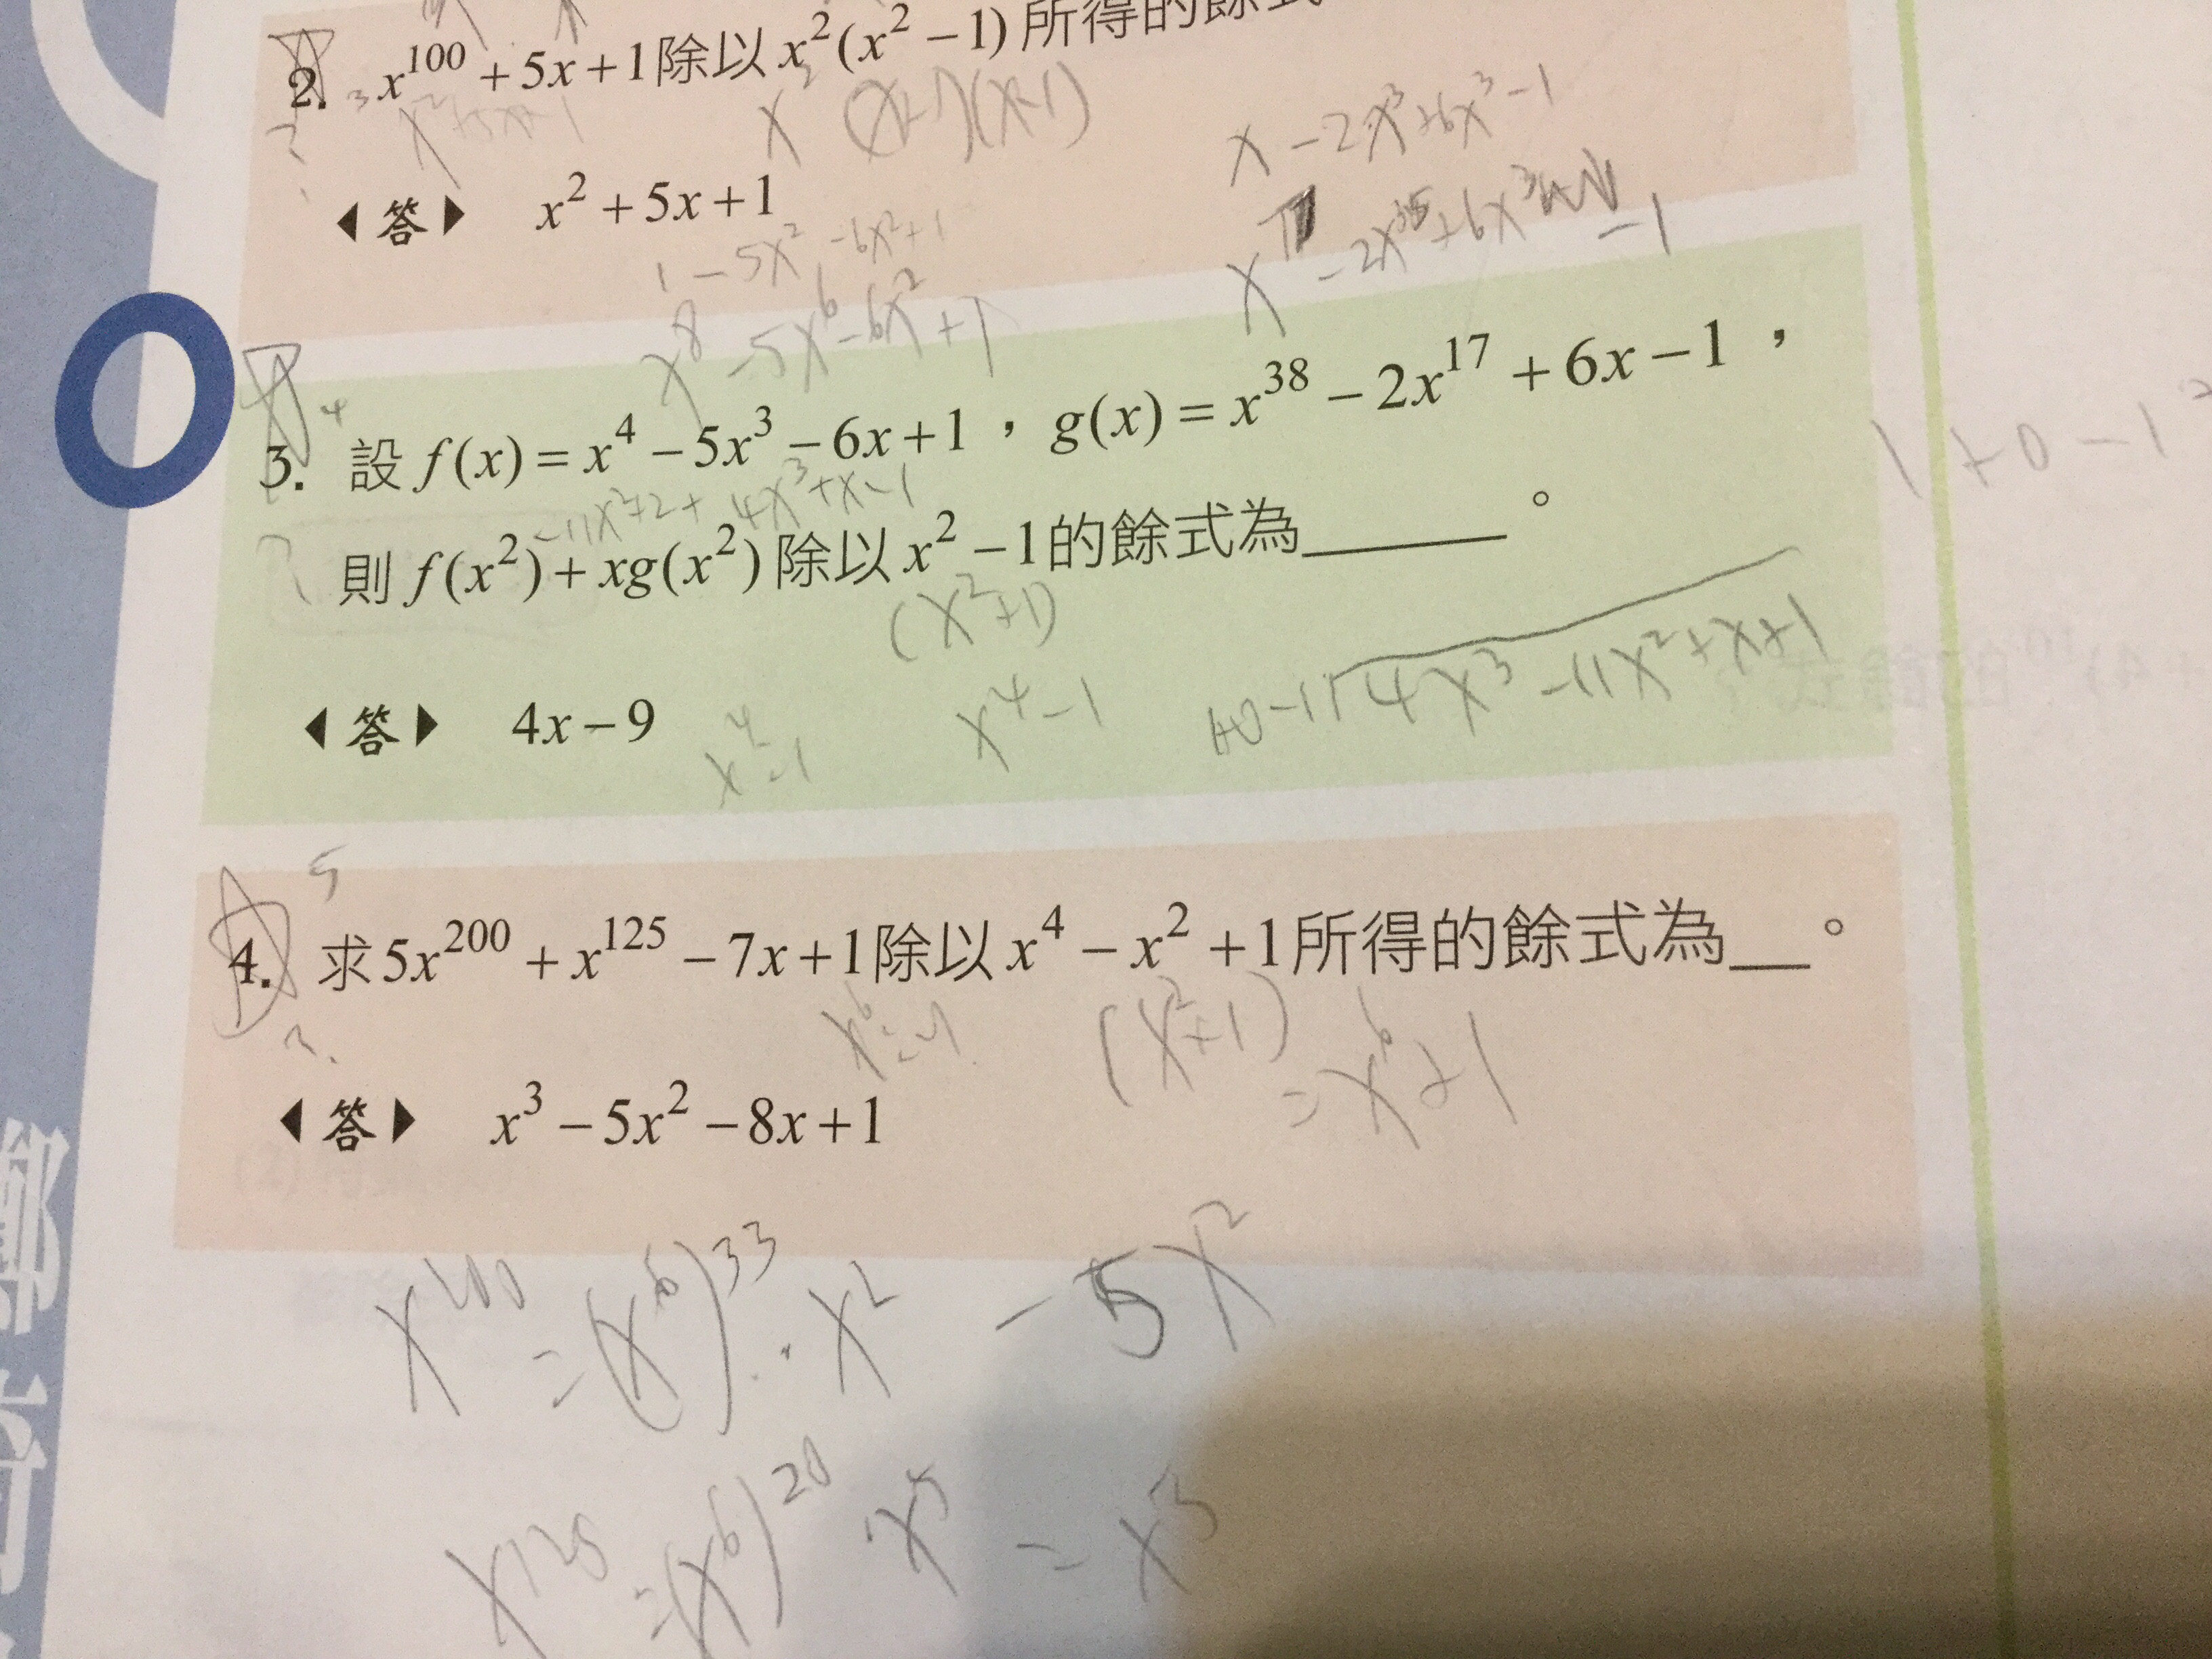 2. x^100 + 5x + 1 除以 x^2(x^2 − 1) 所得的餘式
x^2 (x+1)(x-1)
x − 2x^3 + 6x^3 − 1
◀答▶ x^2 + 5x + 1
1 − 5x^2 − 6x^2 + 1
− 1
x^8 − 5x^6 − 6x^2 + 1
4
3. 設 f(x) = x^4 − 5x^3 − 6x + 1，g(x) = x^38 − 2x^17 + 6x − 1，
1 + 0 − 1
−11x^2 + 2 + 4x^3 + x − 1
則 f(x^2) + xg(x^2) 除以 x^2 − 1 的餘式為______。
(x^2+1)
◀答▶ 4x − 9
x^4 − 1
x^4 − 1
1+0−1 4x^3 − 11x^2 + x + 1
5
4. 求 5x^200 + x^125 − 7x + 1 除以 x^4 − x^2 + 1 所得的餘式為__。
x^6 = −1
(x^2+1)
= x^6 + 1
◀答▶ x^3 − 5x^2 − 8x + 1
x^200 = (x^6)^33 · x^2 − 5x^2
x^125 = (x^6)^20 · x^5 = x^5